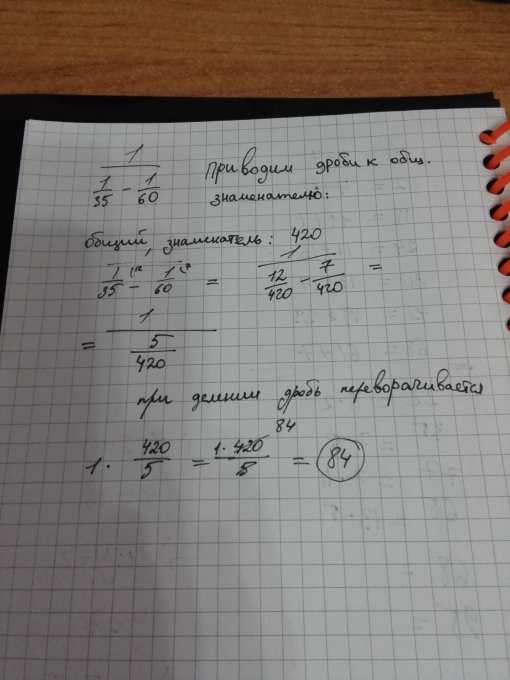 1/(1/35 - 1/60) Приводим дроби к общ.
знаменателю:
общий, знаменатель: 420
1/35 - 1/60 = 1/(12/420 - 7/420) =
= 1/(5/420)
при делении дробь переворачивается
84
1 · 420/5 = 1 · 420/5 = 84